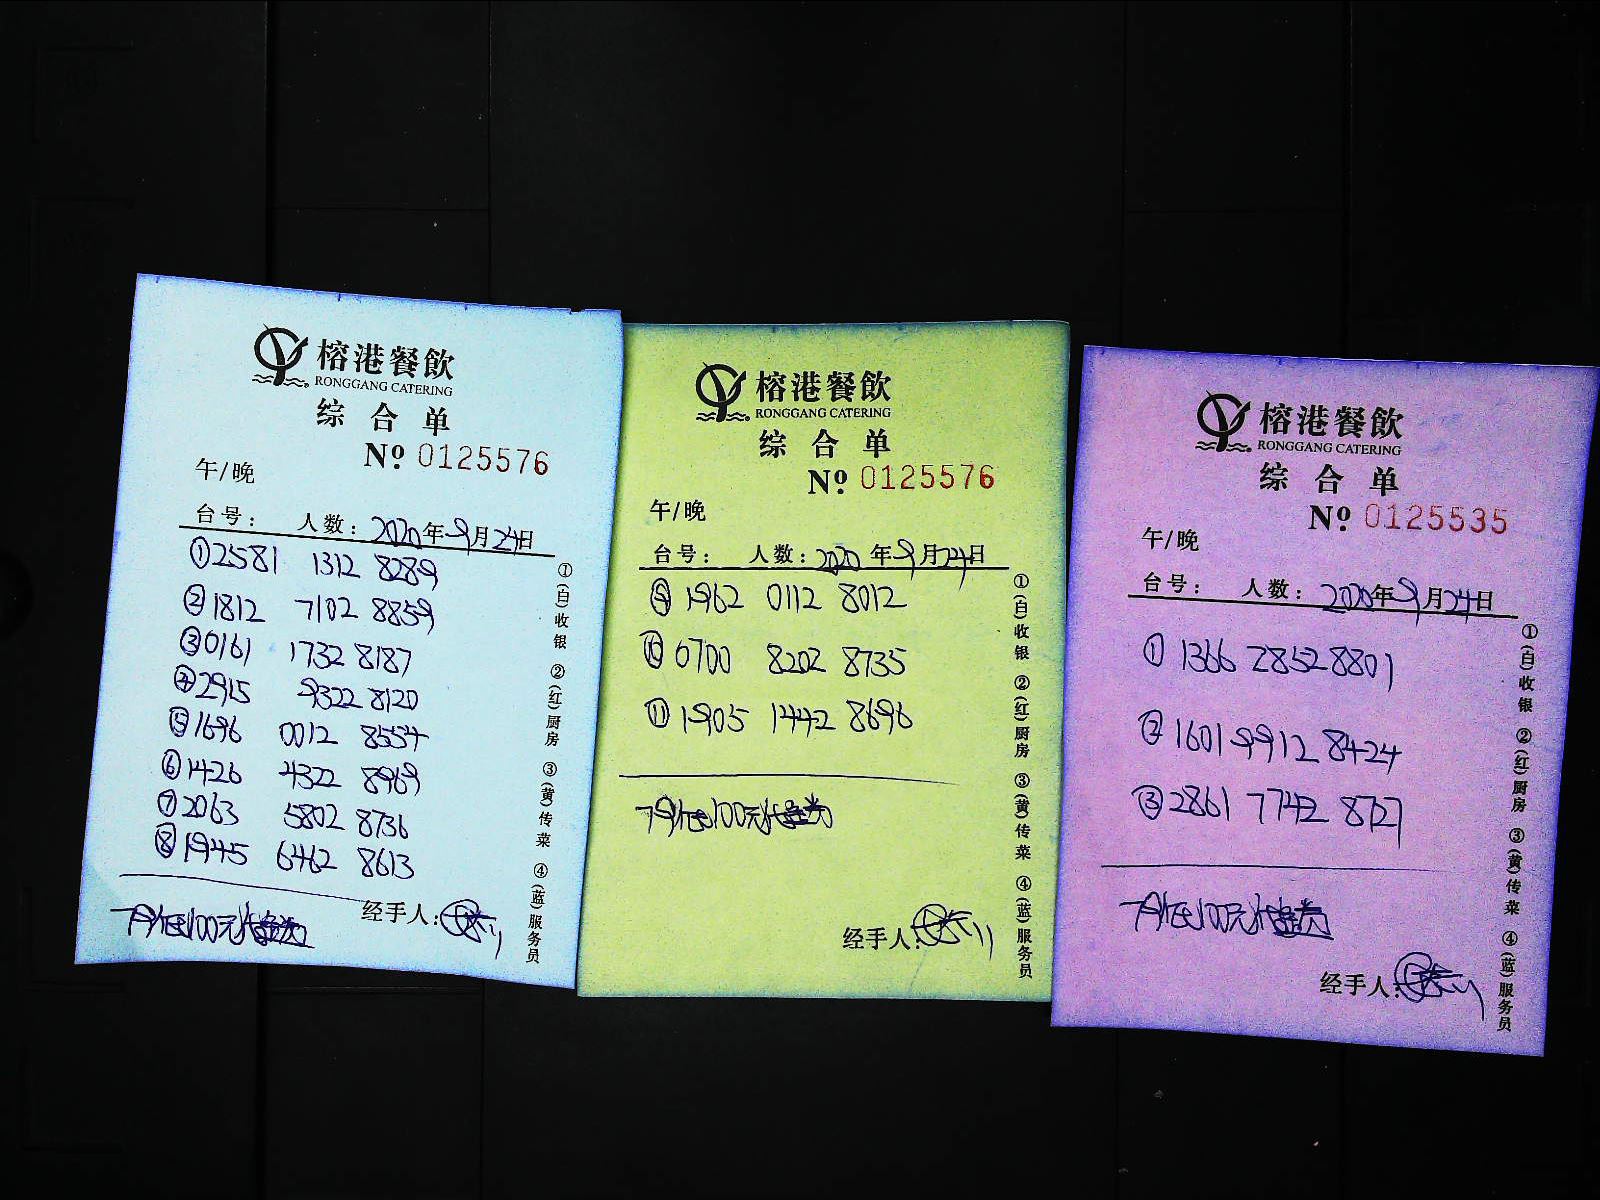 榕港餐飲
RONGGANG CATERING
综合单
Nº 0125576
午/晚
台号： 人数：2020年9月24日
①2581 1312 8289
②1812 7102 8859
③0161 1732 8187
④2915 9322 8120
⑤1696 0012 8554
⑥1426 4322 8969
⑦2063 5802 8736
⑧1945 6462 8613
100元
经手人：
①(白)收银 ②(红)厨房 ③(黄)传菜 ④(蓝)服务员
榕港餐飲
RONGGANG CATERING
综合单
Nº 0125576
午/晚
台号： 人数：2020年9月24日
⑨ 1962 0112 8012
⑩ 6700 8202 8735
⑪ 1905 1442 8696
100元
经手人：
①(白)收银 ②(红)厨房 ③(黄)传菜 ④(蓝)服务员
榕港餐飲
RONGGANG CATERING
综合单
Nº 0125535
午/晚
台号： 人数：2020年9月24日
① 1366 2852 8801
② 1601 9912 8424
③ 2861 7742 8727
100元
经手人：
①(白)收银 ②(红)厨房 ③(黄)传菜 ④(蓝)服务员